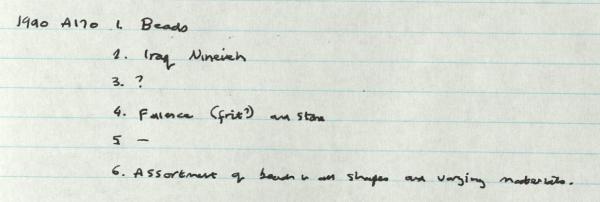 1990 A170 1. Beads
2. Iraq Nineveh
3. ?
4. Faience (frit?) and stone
5 —
6. Assortment of beads in all shapes and varying materials.